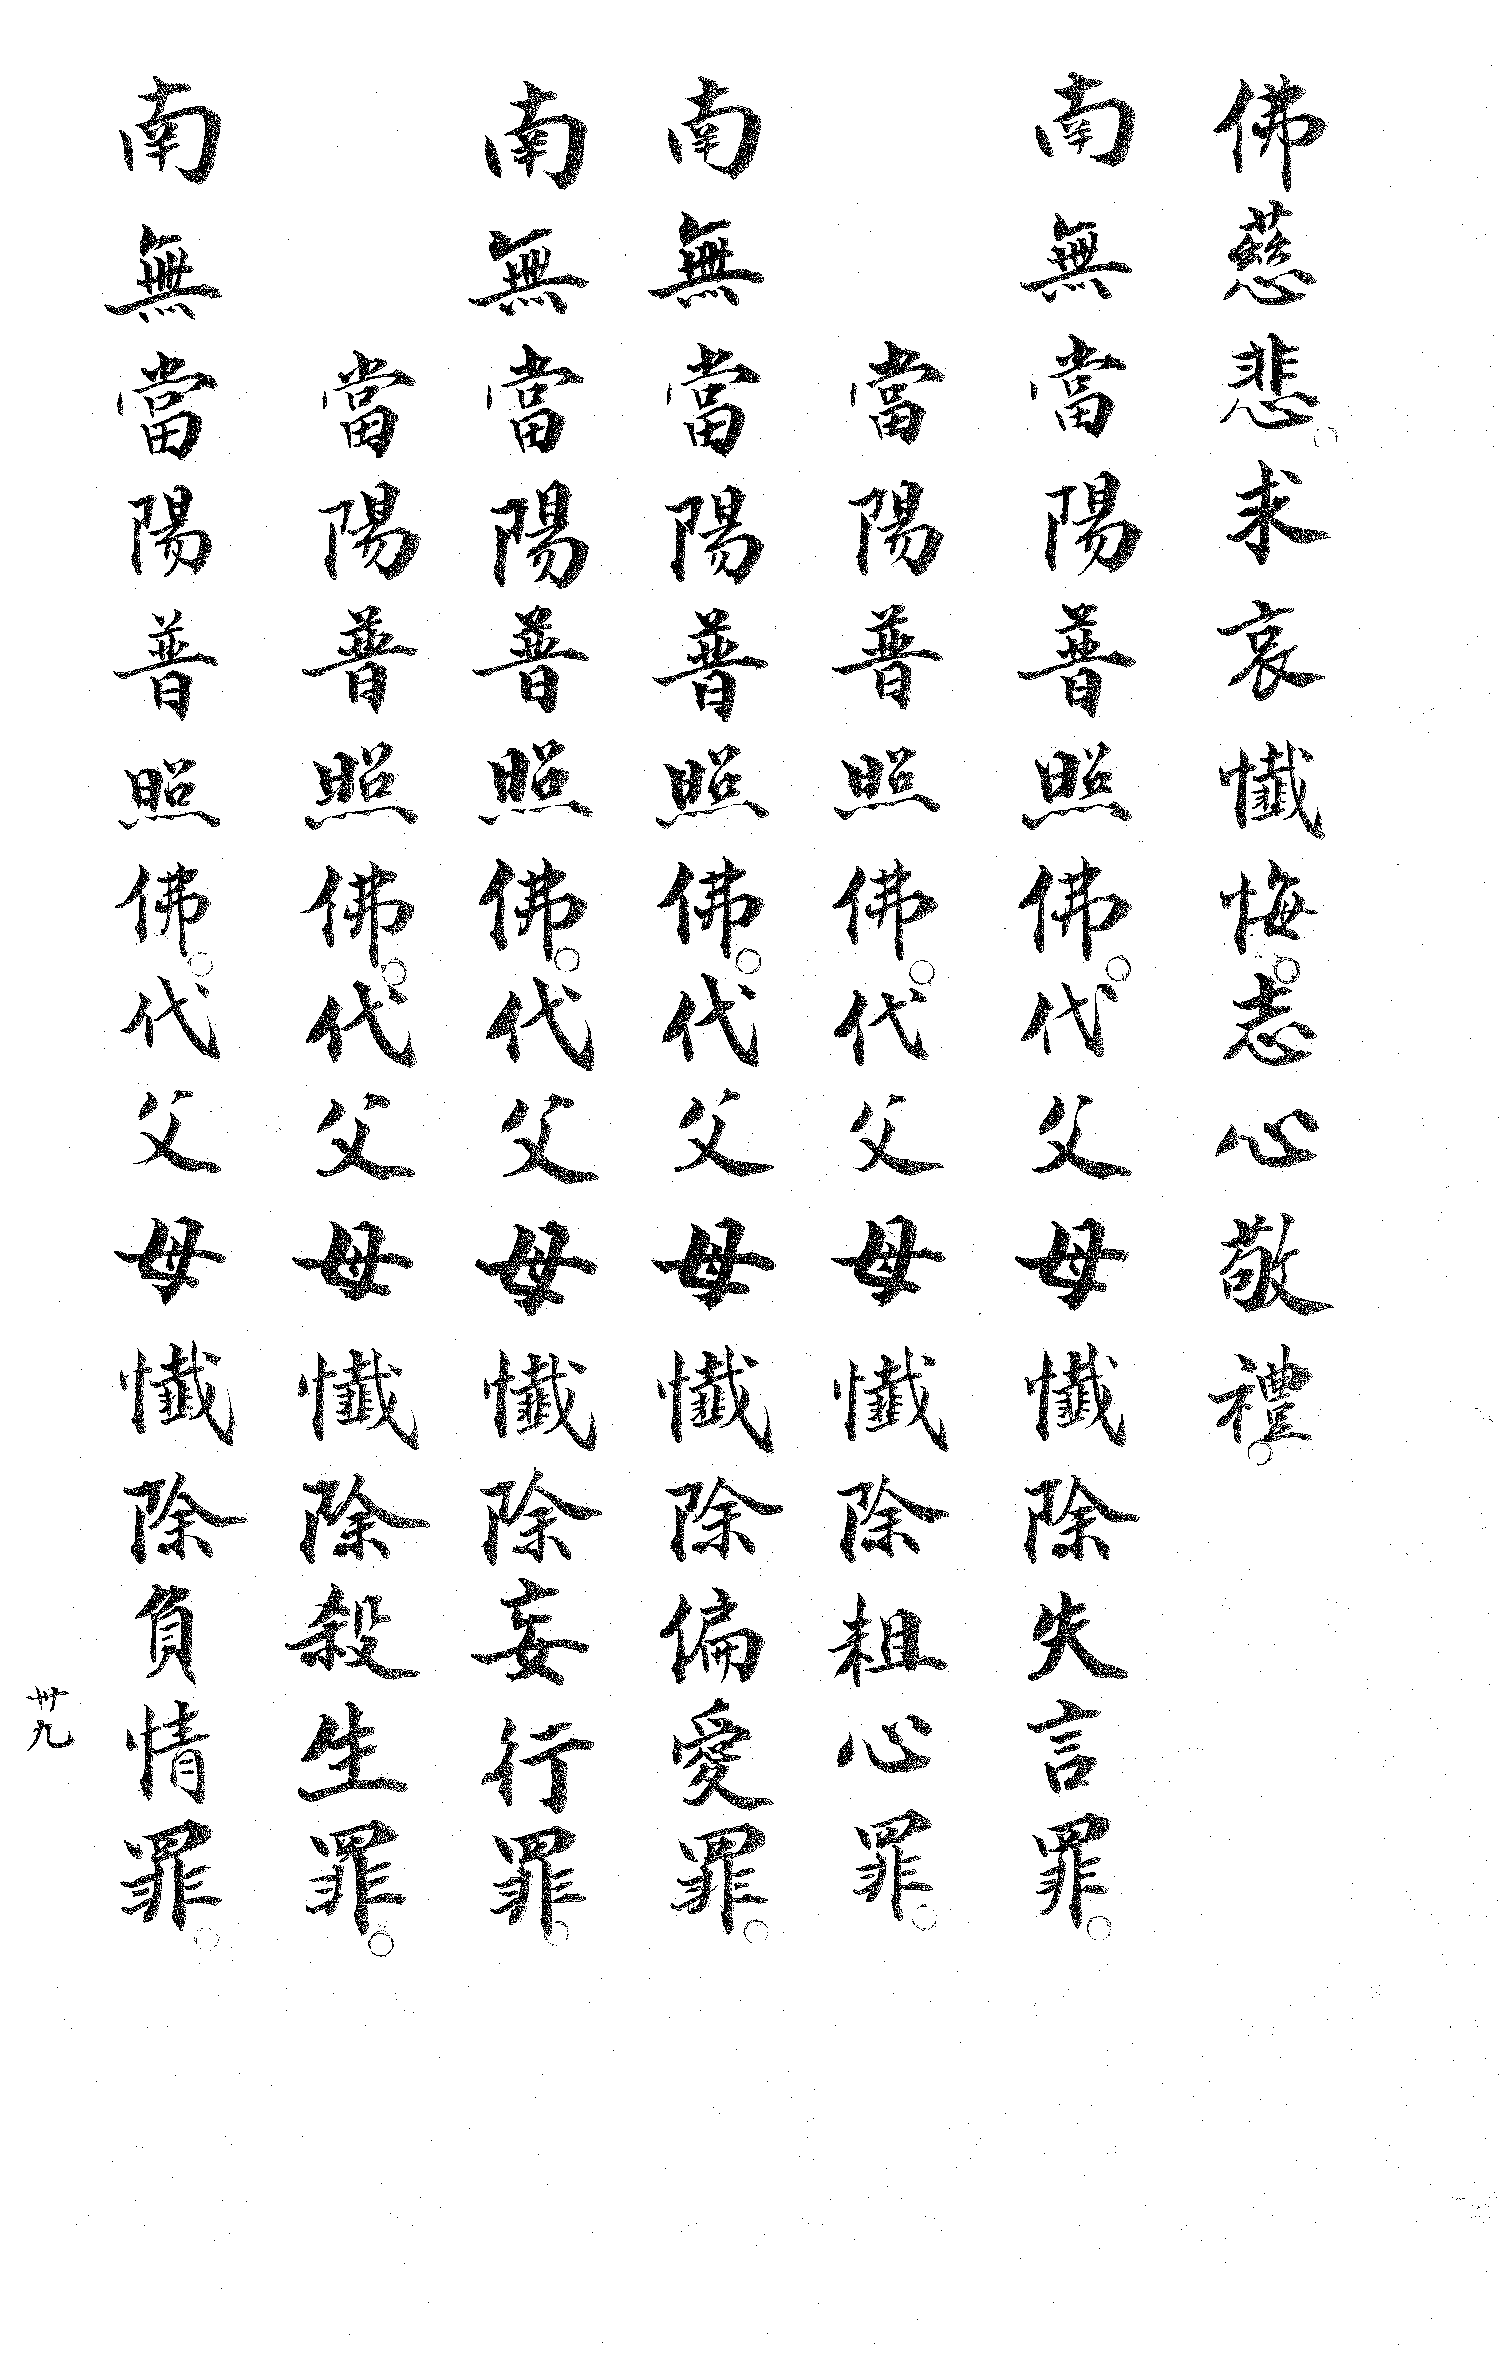 佛慈悲。求哀懺悔。志心敬禮。
南無當陽普照佛。代父母懺除失言罪。
當陽普照佛。代父母懺除粗心罪。
南無當陽普照佛。代父母懺除偏愛罪。
南無當陽普照佛。代父母懺除妄行罪。
當陽普照佛。代父母懺除殺生罪。
南無當陽普照佛。代父母懺除負情罪。
卅九